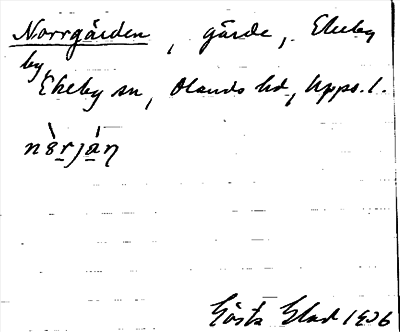 Norrgården, gärde, Ekeby
by
Ekeby sn, Olands hd, Upps. l.
nɵ̀rjáŋ
Gösta Glad 1926